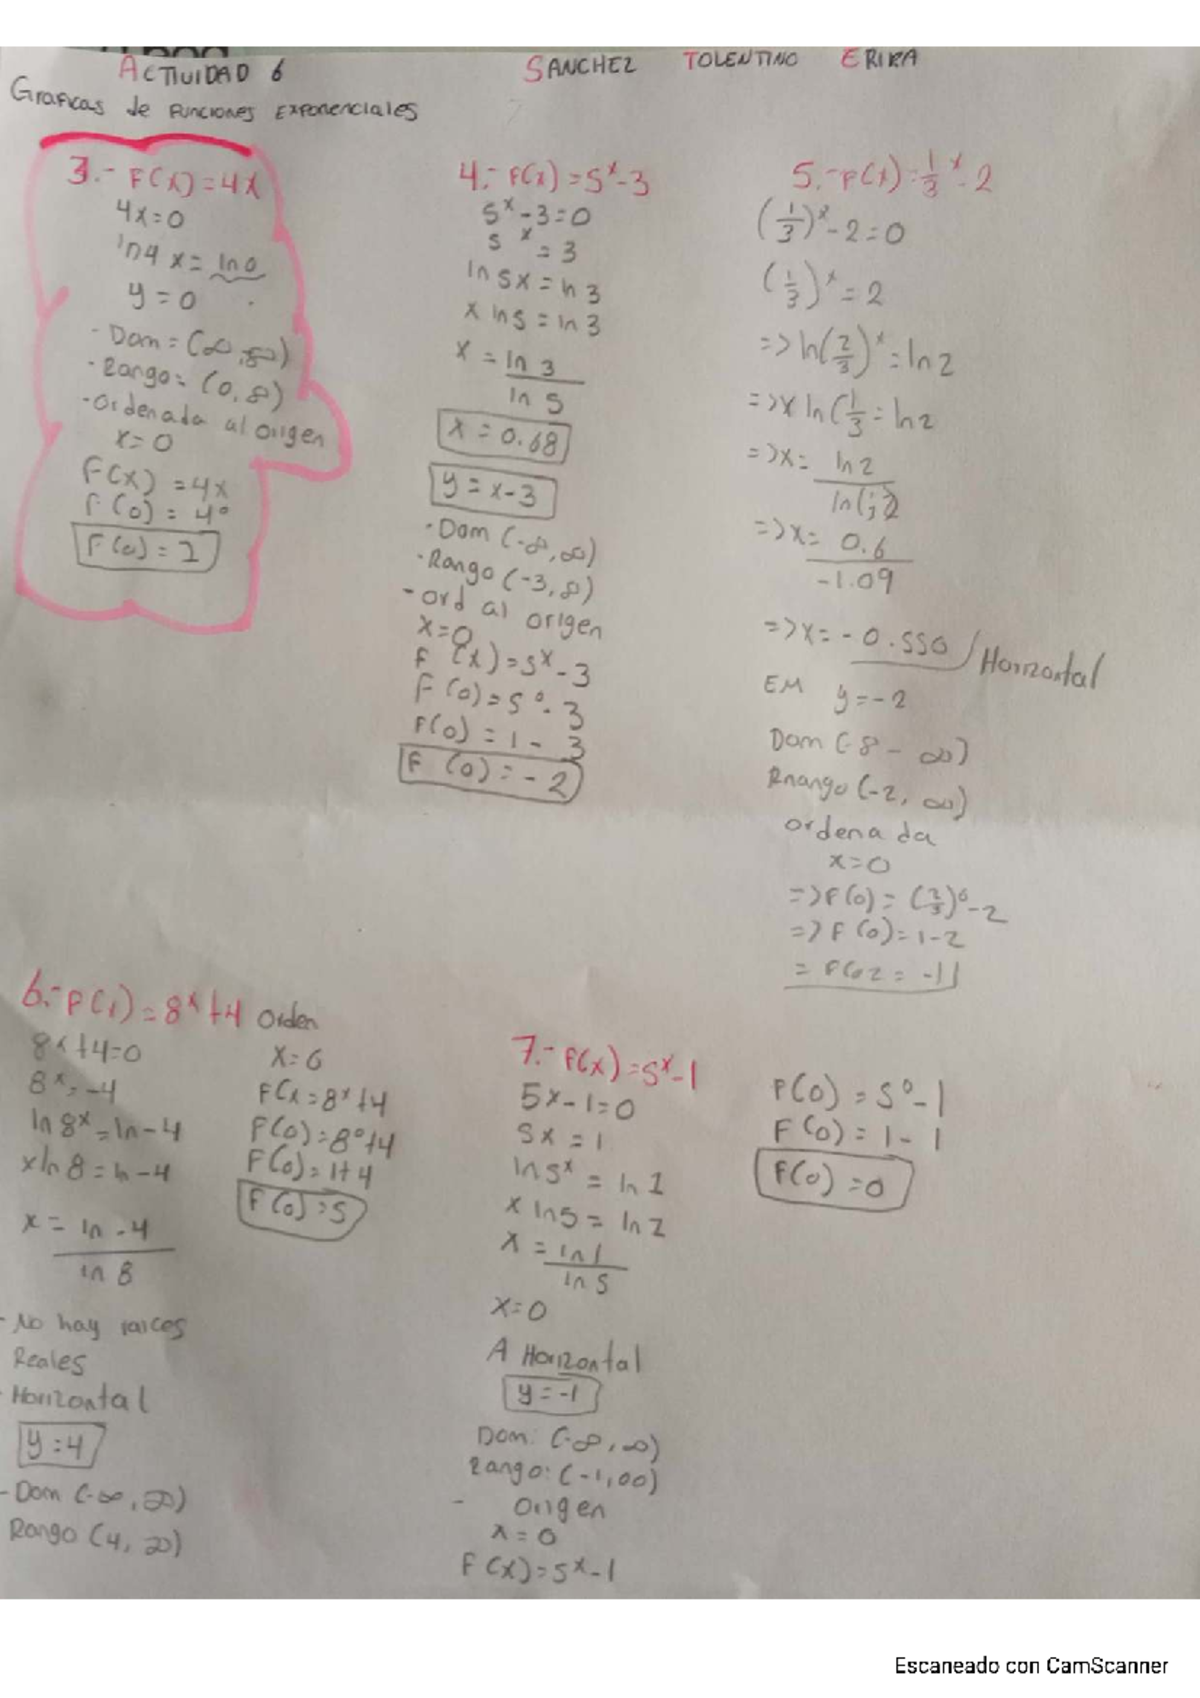 ACTIVIDAD 6
SANCHEZ TOLENTINO ERIKA
Graficas de Funciones Exponenciales
3.- F(x)=4x
4x=0
ln4 x= ln0
y=0
- Dom=(∞,∞)
- Rango=(0,∞)
- Ordenada al origen
x=0
F(x)=4x
F(0)=4⁰
F(0)=1
4.- F(x)=5ˣ-3
5ˣ-3=0
5ˣ=3
ln5x=ln3
x ln5=ln3
x=ln 3
ln 5
x=0.68
y=x-3
- Dom (-∞,∞)
- Rango (-3,∞)
- ord al origen
x=0
F(x)=5ˣ-3
F(0)=5⁰-3
F(0)=1-3
F(0)=-2
5.- F(x)=1/3ˣ-2
(1/3)ˣ-2=0
(1/3)ˣ=2
=>ln(2/3)ˣ=ln2
=>x ln(1/3=ln2
=>x= ln2
=>x= 0.6
-1.09
=>x=-0.550 / Horizontal
EM y=-2
Dom (-8 - ∞)
Rnango (-2, ∞)
ordenada
x=0
=>F(0)=(2/3)⁰-2
=>F(0)=1-2
6.- F(x)=8ˣ+4 Orden
8ˣ+4=0
8ˣ=-4
ln8ˣ=ln-4
xln8=ln-4
x=ln-4
ln 8
- No hay raices
Reales
- Horizontal
y=4
- Dom (-∞,∞)
Rango (4,∞)
x=0
F(x=8ˣ+4
F(0)=8⁰+4
F(0)=1+4
F(0)=5
7.- F(x)=5ˣ-1
5x-1=0
5x=1
ln5ˣ=ln1
x ln5=ln2
x=ln1
ln5
x=0
A Horizontal
y=-1
Dom: (-∞,∞)
Rango: (-1,00)
- Origen
x=0
F(x)=5ˣ-1
F(0)=5⁰-1
F(0)=1-1
F(0)=0
Escaneado con CamScanner